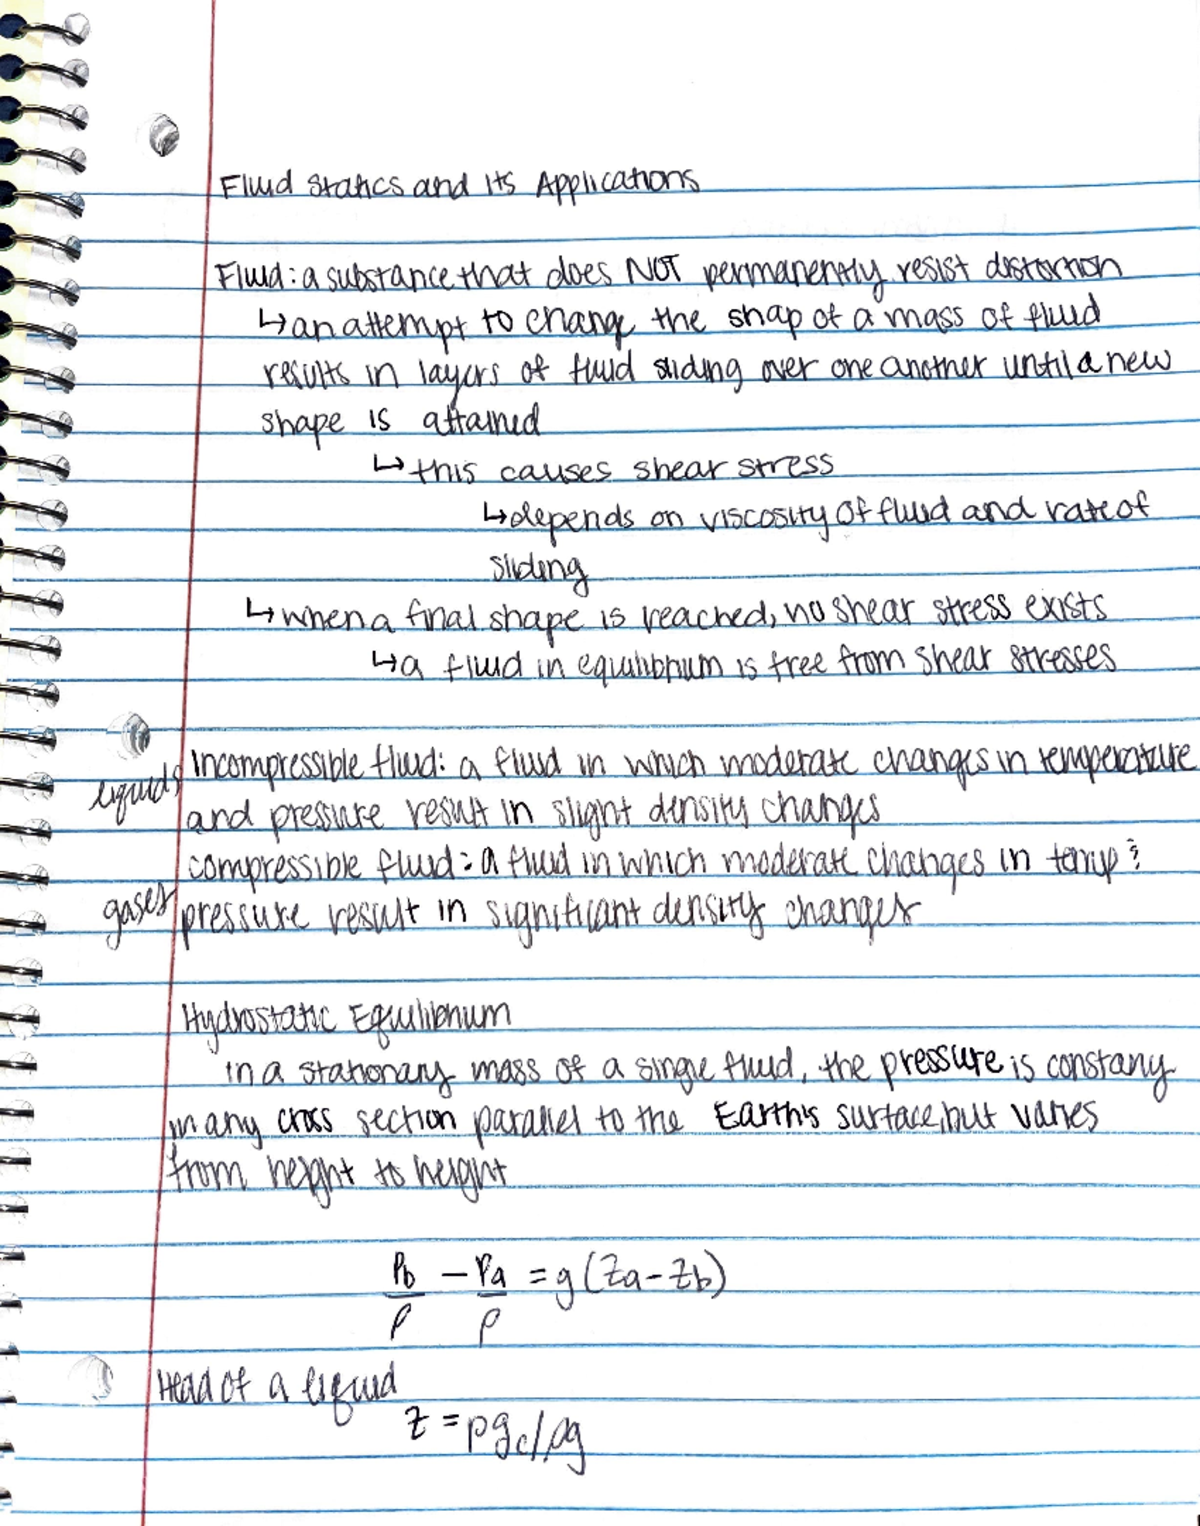 Fluid Statics and its Applications
Fluid: a substance that does NOT permanently resist distortion
↳ an attempt to change the shap of a mass of fluid
results in layers of fluid sliding over one another until a new
shape is attained
↳ this causes shear stress
↳ depends on viscosity of fluid and rate of
sliding
↳ when a final shape is reached, no shear stress exists
↳ a fluid in equilibrium is free from shear stresses
liquids Incompressible fluid: a fluid in which moderate changes in temperature
and pressure result in slight density changes
compressible fluid: a fluid in which moderate changes in temp &
gases pressure result in significant density changes
Hydrostatic Equilibrium
in a stationary mass of a single fluid, the pressure is constany
in any cross section parallel to the Earth's surface, but varies
from height to height
Pb/ρ - Pa/ρ = g(Za-Zb)
Head of a liquid
Z = pgc/ρg